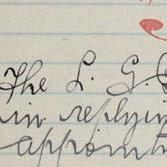 The L. G.
in replying
appoint